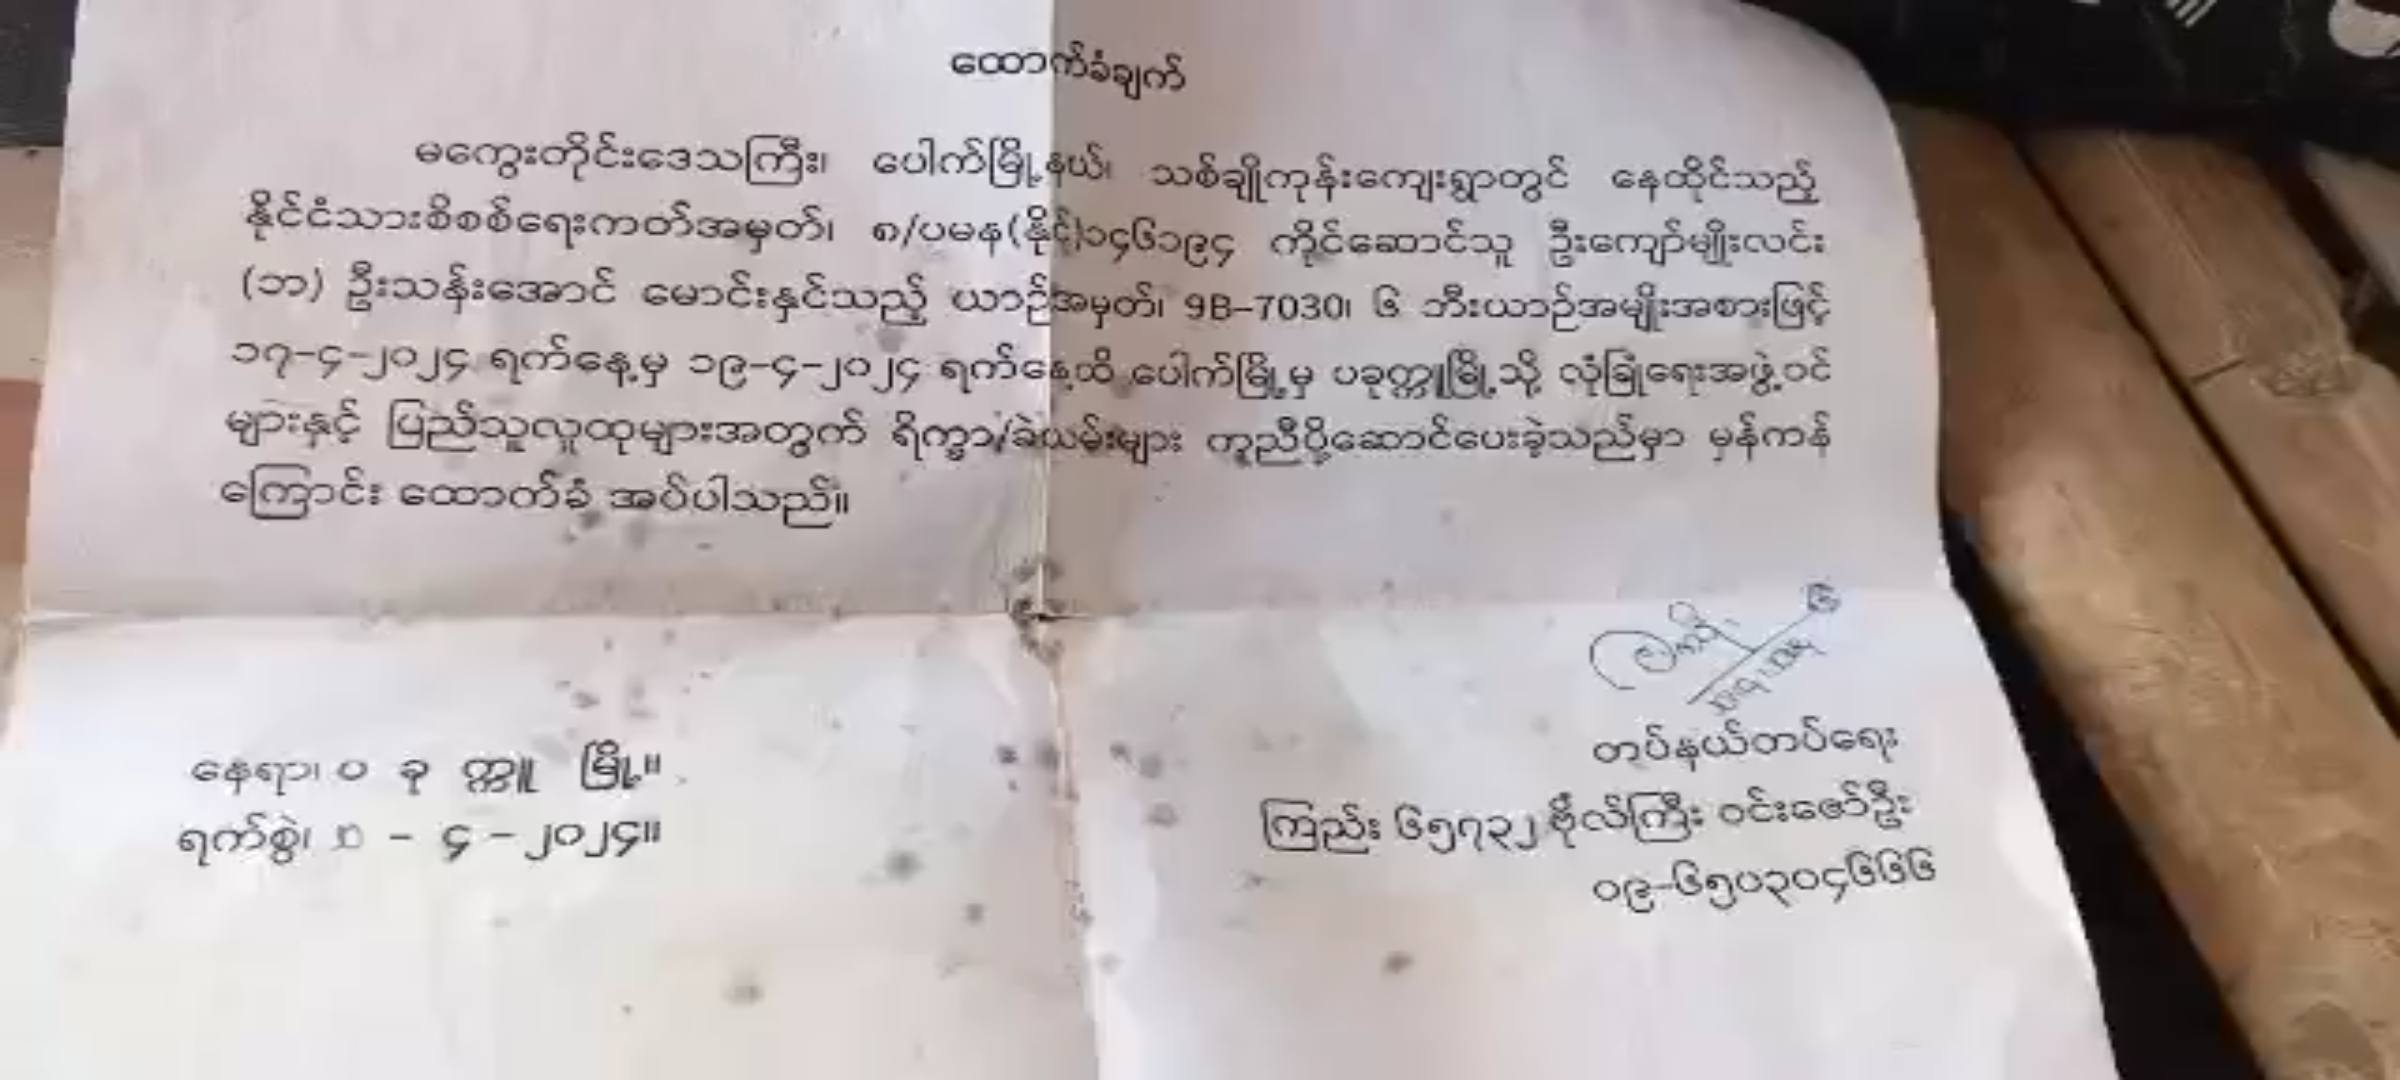 ထောက်ခံချက်
မကွေးတိုင်းဒေသကြီး၊ ပေါက်မြို့နယ်၊ သစ်ချိုကုန်းကျေးရွာတွင် နေထိုင်သည့်
နိုင်ငံသားစိစစ်ရေးကတ်အမှတ်၊ ၈/ပမန(နိုင်)၁၄၆၁၉၄ ကိုင်ဆောင်သူ ဦးကျော်မျိုးလင်း
(ဘ) ဦးသန်းအောင် မောင်းနှင်သည့် ယာဉ်အမှတ်၊ 9B-7030၊ ၆ ဘီးယာဉ်အမျိုးအစားဖြင့်
၁၇-၄-၂၀၂၄ ရက်နေ့မှ ၁၉-၄-၂၀၂၄ ရက်နေ့ထိ ပေါက်မြို့မှ ပခုက္ကူမြို့သို့ လုံခြုံရေးအဖွဲ့ဝင်
များနှင့် ပြည်သူလူထုများအတွက် ရိက္ခာ/ခဲယမ်းများ ကူညီပို့ဆောင်ပေးခဲ့သည်မှာ မှန်ကန်
ကြောင်း ထောက်ခံ အပ်ပါသည်။
တပ်နယ်တပ်ရေး
နေရာ၊ ပ ခု က္ကူ မြို့။
ကြည်း ၆၅၇၃၂ ဗိုလ်ကြီး ဝင်းဇော်ဦး
ရက်စွဲ၊ - ၄ - ၂၀၂၄။
၀၉-၆၅၀၃၀၄၆၆၆